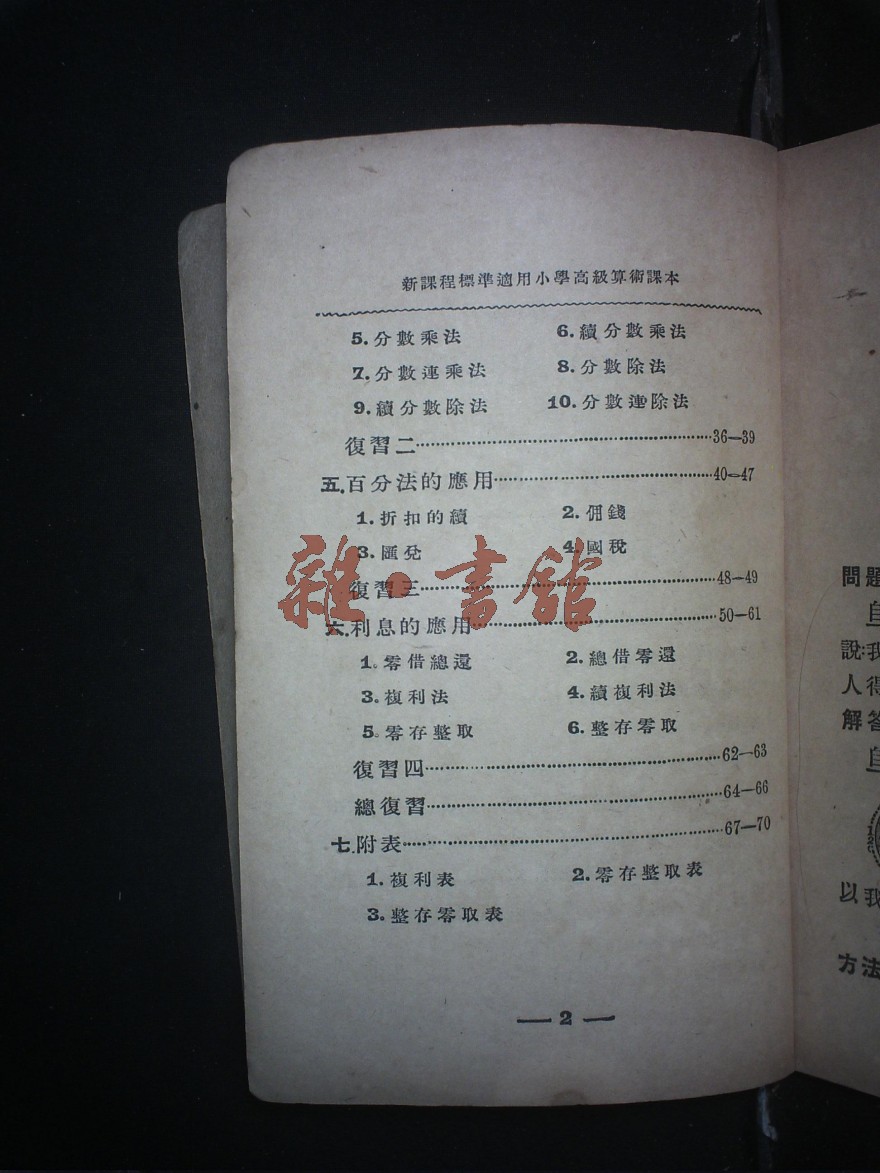 新課程標準適用小學高級算術課本
5.分數乘法 6.續分數乘法
7.分數連乘法 8.分數除法
9.續分數除法 10.分數連除法
復習二……36—39
五.百分法的應用……40—47
1.折扣的續 2.佣錢
3.匯兌 4.國稅
復習三……48—49
六.利息的應用……50—61
1.零借總還 2.總借零還
3.複利法 4.續複利法
5.零存整取 6.整存零取
復習四……62—63
總復習……64—66
七.附表……67—70
1.複利表 2.零存整取表
3.整存零取表
— 2 —
雜·書館
問題
說:我
人得
解答
以我
方法